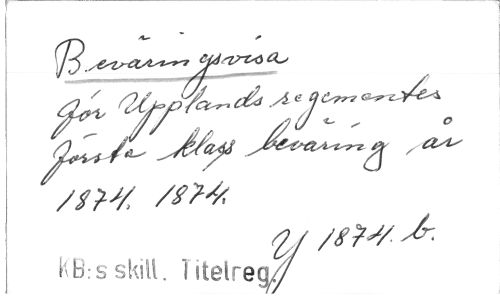 Beväringsvisa
för Upplands regementes
första klass beväring år
1874. 1874.
Y 1874. b.
KB:s skill. Titelreg.